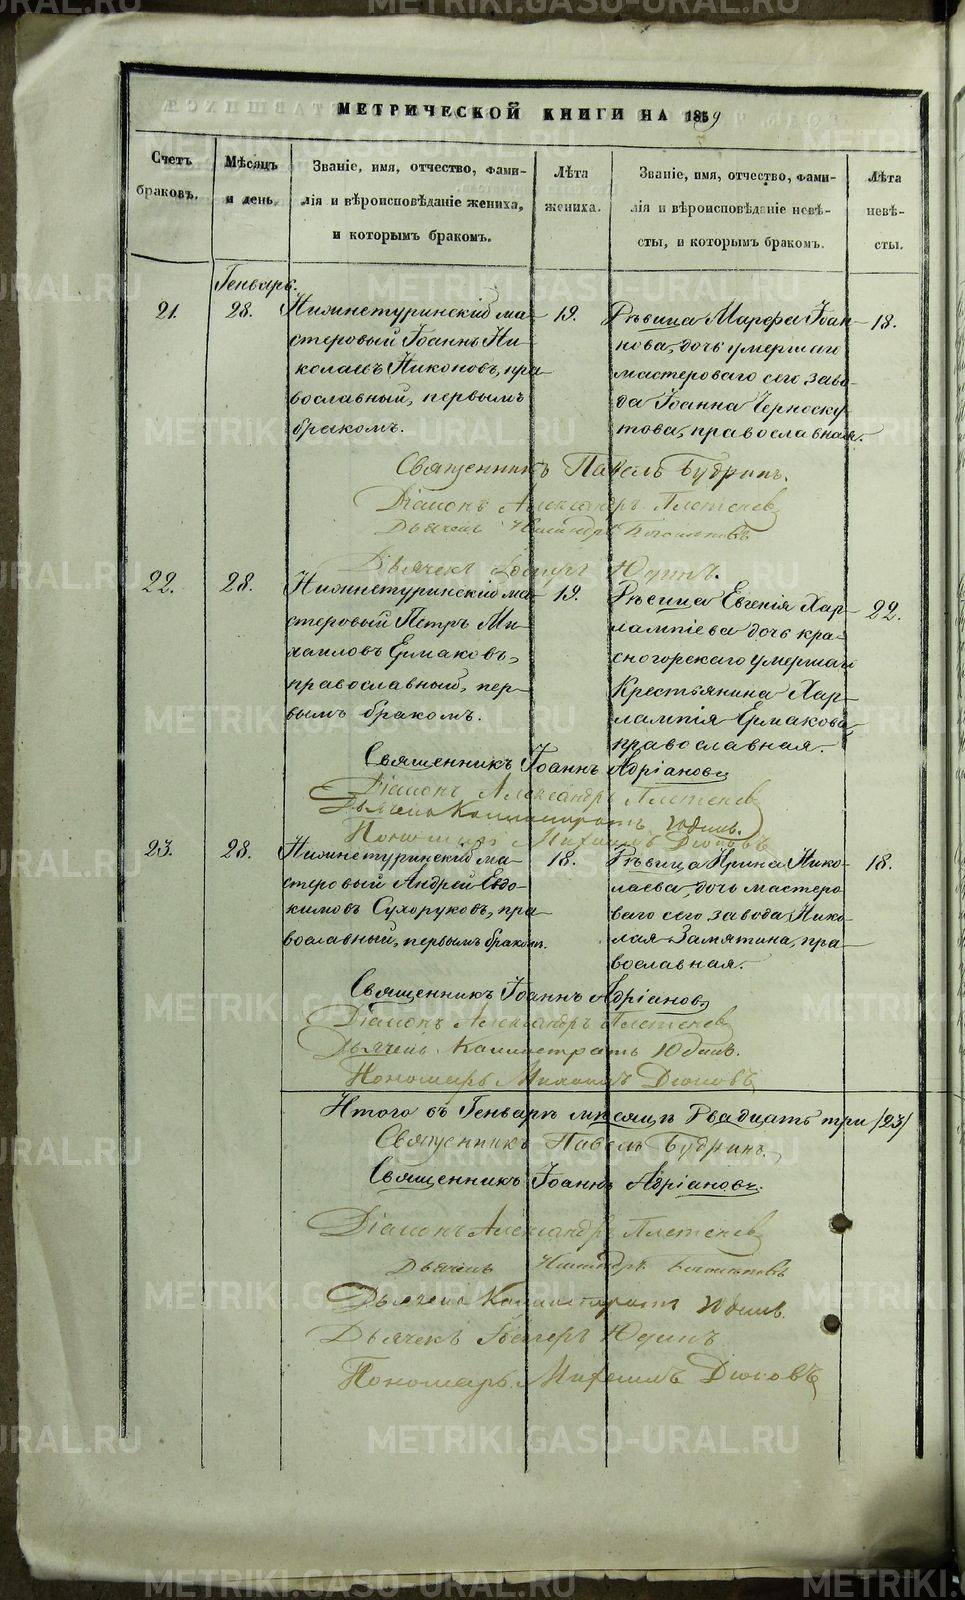 МЕТРИЧЕСКОЙ КНИГИ НА 1859
Счетъ браковъ.
Мѣсяцъ и день.
Званіе, имя, отчество, фами-
лія и вѣроисповѣданіе жениха,
и которымъ бракомъ.
Лѣта жениха.
Званіе, имя, отчество, фами-
лія и вѣроисповѣданіе невѣ-
сты, и которымъ бракомъ.
Лѣта невѣ-
сты.
Генварь.
21.
28.
Нижнетуринскій ма-
стеровый Іоаннъ Ни-
колаевъ Никоновъ, пра-
вославный, первымъ
бракомъ.
19.
Дѣвица Марѳа Іоан-
нова, дочь умершаго
мастероваго сего заво-
да Іоанна Черноску-
това, православная.
18.
Священникъ Павелъ Будринъ.
Діаконъ Александръ Плетенев
Дьячекъ
Дьячекъ Юдинъ.
22.
28.
Нижнетуринскій ма-
стеровый Петръ Ми-
хаиловъ Ермаковъ,
православный, пер-
вымъ бракомъ.
19.
Дѣвица Евгенія Хар-
лампіева дочь кра-
сногорскаго умершаго
Крестьянина Хар-
лампія Ермакова,
православная.
22.
Священникъ Іоаннъ Адріановъ
Діаконъ Александръ Плетенев
Дьячекъ Каллистратъ Юдинъ.
Пономарь Михаилъ Дюковъ
23.
28.
Нижнетуринскій ма-
стеровый Андрей Евдо-
кимовъ Сухоруковъ, пра-
вославный, первымъ бракомъ.
18.
Дѣвица Ирина Нико-
лаева, дочь мастеро
ваго сего завода Нико-
лая Замятина, пра-
вославная.
18.
Священникъ Іоаннъ Адріановъ
Діаконъ Александръ Плетенев
Дьячекъ Каллистратъ Юдинъ.
Пономарь Михаилъ Дюковъ
Итого въ Генварѣ мѣсяцѣ Двадцать три /23/
Священникъ Павелъ Будринъ.
Священникъ Іоаннъ Адріановъ.
Діаконъ Александръ Плетенев
Дьячекъ
Дьячекъ Каллистратъ Юдинъ.
Дьячекъ Юдинъ
Пономарь Михаилъ Дюковъ
METRIKI.GASO-URAL.RU